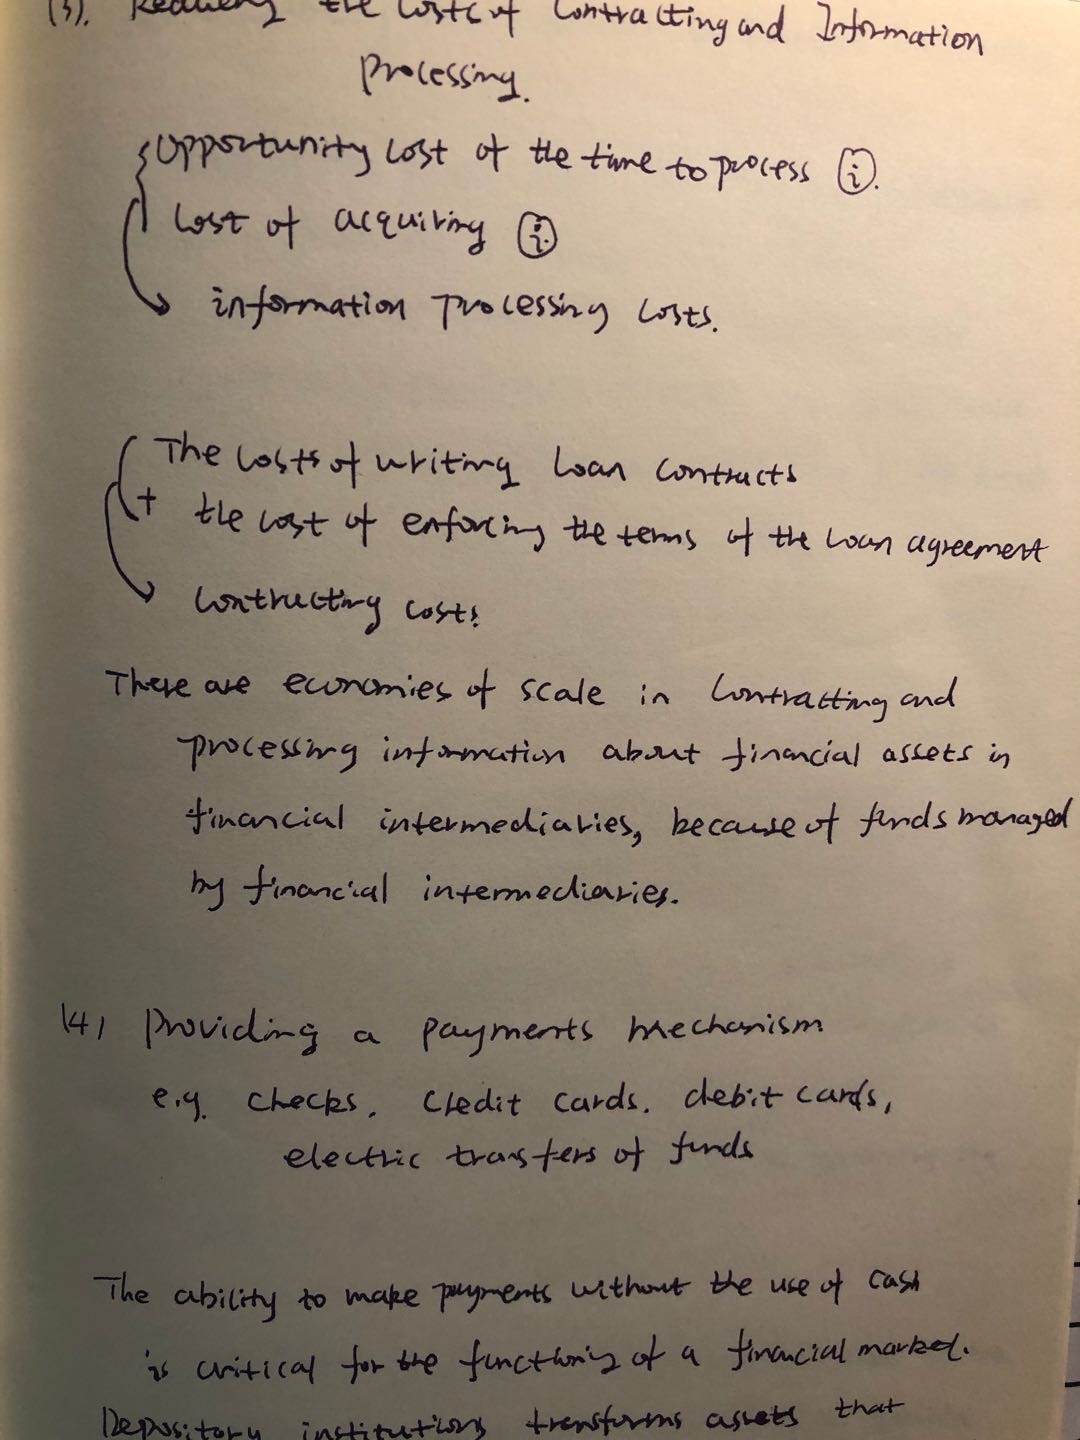 (3). Reducing the costs of Contracting and Information
processing.
Opportunity cost of the time to process ⓘ.
Cost of acquiring ⓘ
information processing costs.
The costs of writing loan contracts
+ the cost of enforcing the terms of the loan agreement
Contracting costs.
There are economies of scale in Contracting and
processing information about financial assets in
financial intermediaries, because of funds managed
by financial intermediaries.
(4) Providing a payments mechanism
e.g. Checks. Credit cards. debit cards,
electric transfers of funds
The ability to make payments without the use of cash
is critical for the functioning of a financial market.
Depository institutions transforms assets that